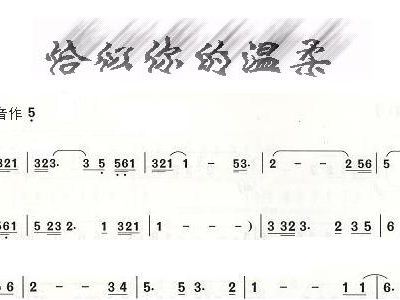 恰似你的温柔
音作 5
321 | 323· 3 5 561 | 321 1 - 53· | 2 - - 2 56 | 5
561 | 5 23 2· 1 321 | 1 - - - ) | 3 32 3· 2 3 5 | 6
5 6 | 2 - - 3 4 | 5· 5 3· 2 | 1 - - 1 1 | 6·